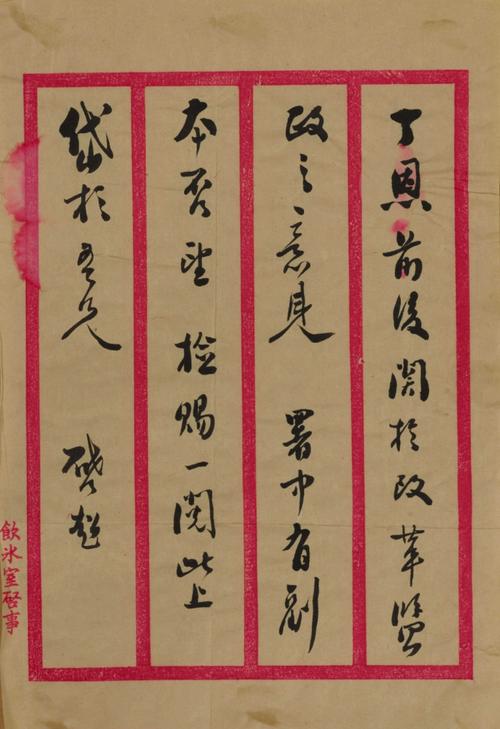 丁恩前後關於改革鹽
政之意見 署中有刻
本否望 檢賜一閱此上
岱杉吾兄 啓超
飲冰室啓事